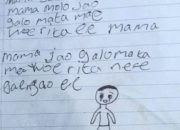 mama molo jao
galo mata mae
noe rita le mama
mama jao galo mata
ma noe rita nese